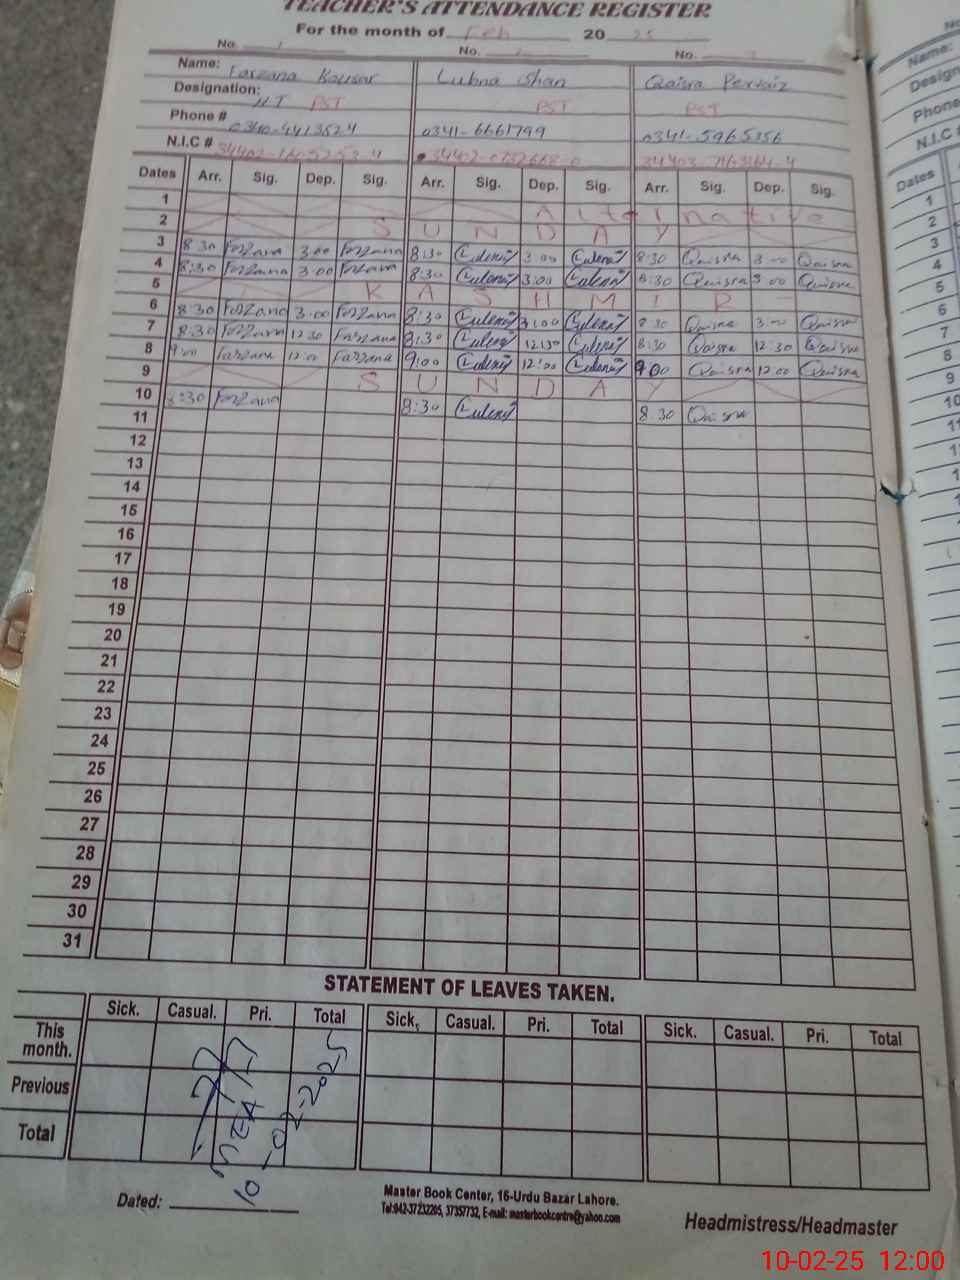 TEACHER'S ATTENDANCE REGISTER
For the month of Feb 20 25
No. 1 No. No.
Name: Farzana Kousar Lubna Ishan Qaisra Pervaiz
Designation: HT PST PST PST
Phone # 0341-6661799 0341-5965356
N.I.C #
Dates Arr. Sig. Dep. Sig. Arr. Sig. Dep. Sig. Arr. Sig. Dep. Sig.
1 Alternative
2 SUNDAY
3 8:30 Farzana 3:00 Farzana 8:30 3:00 8:30 Qaisra 3:00 Qaisra
4 8:30 Farzana 3:00 Farzana 8:30 3:00 8:30 Qaisra 3:00 Qaisra
5 KASHMIR
6 8:30 Farzana 3:00 Farzana 8:30 3:00 8:30 Qaisra 3:00 Qaisra
7 8:30 Farzana 12:30 Farzana 8:30 12:30 8:30 Qaisra 12:30 Qaisra
8 9:00 Farzana 12:00 Farzana 9:00 12:00 9:00 Qaisra 12:00 Qaisra
9 SUNDAY
10 8:30 Farzana 8:30 8:30 Qaisra
11
12
13
14
15
16
17
18
19
20
21
22
23
24
25
26
27
28
29
30
31
STATEMENT OF LEAVES TAKEN.
Sick. Casual. Pri. Total Sick. Casual. Pri. Total Sick. Casual. Pri. Total
This month.
Previous
Total
MEA
10-02-2025
Dated:
Master Book Center, 16-Urdu Bazar Lahore.
Tel:042-37232285, 37357732, E-mail: masterbookcentre@yahoo.com
Headmistress/Headmaster
Dates
1
2
3
4
5
6
7
8
9
10
11
Name:
Phone
N.I.C
10-02-25 12:00